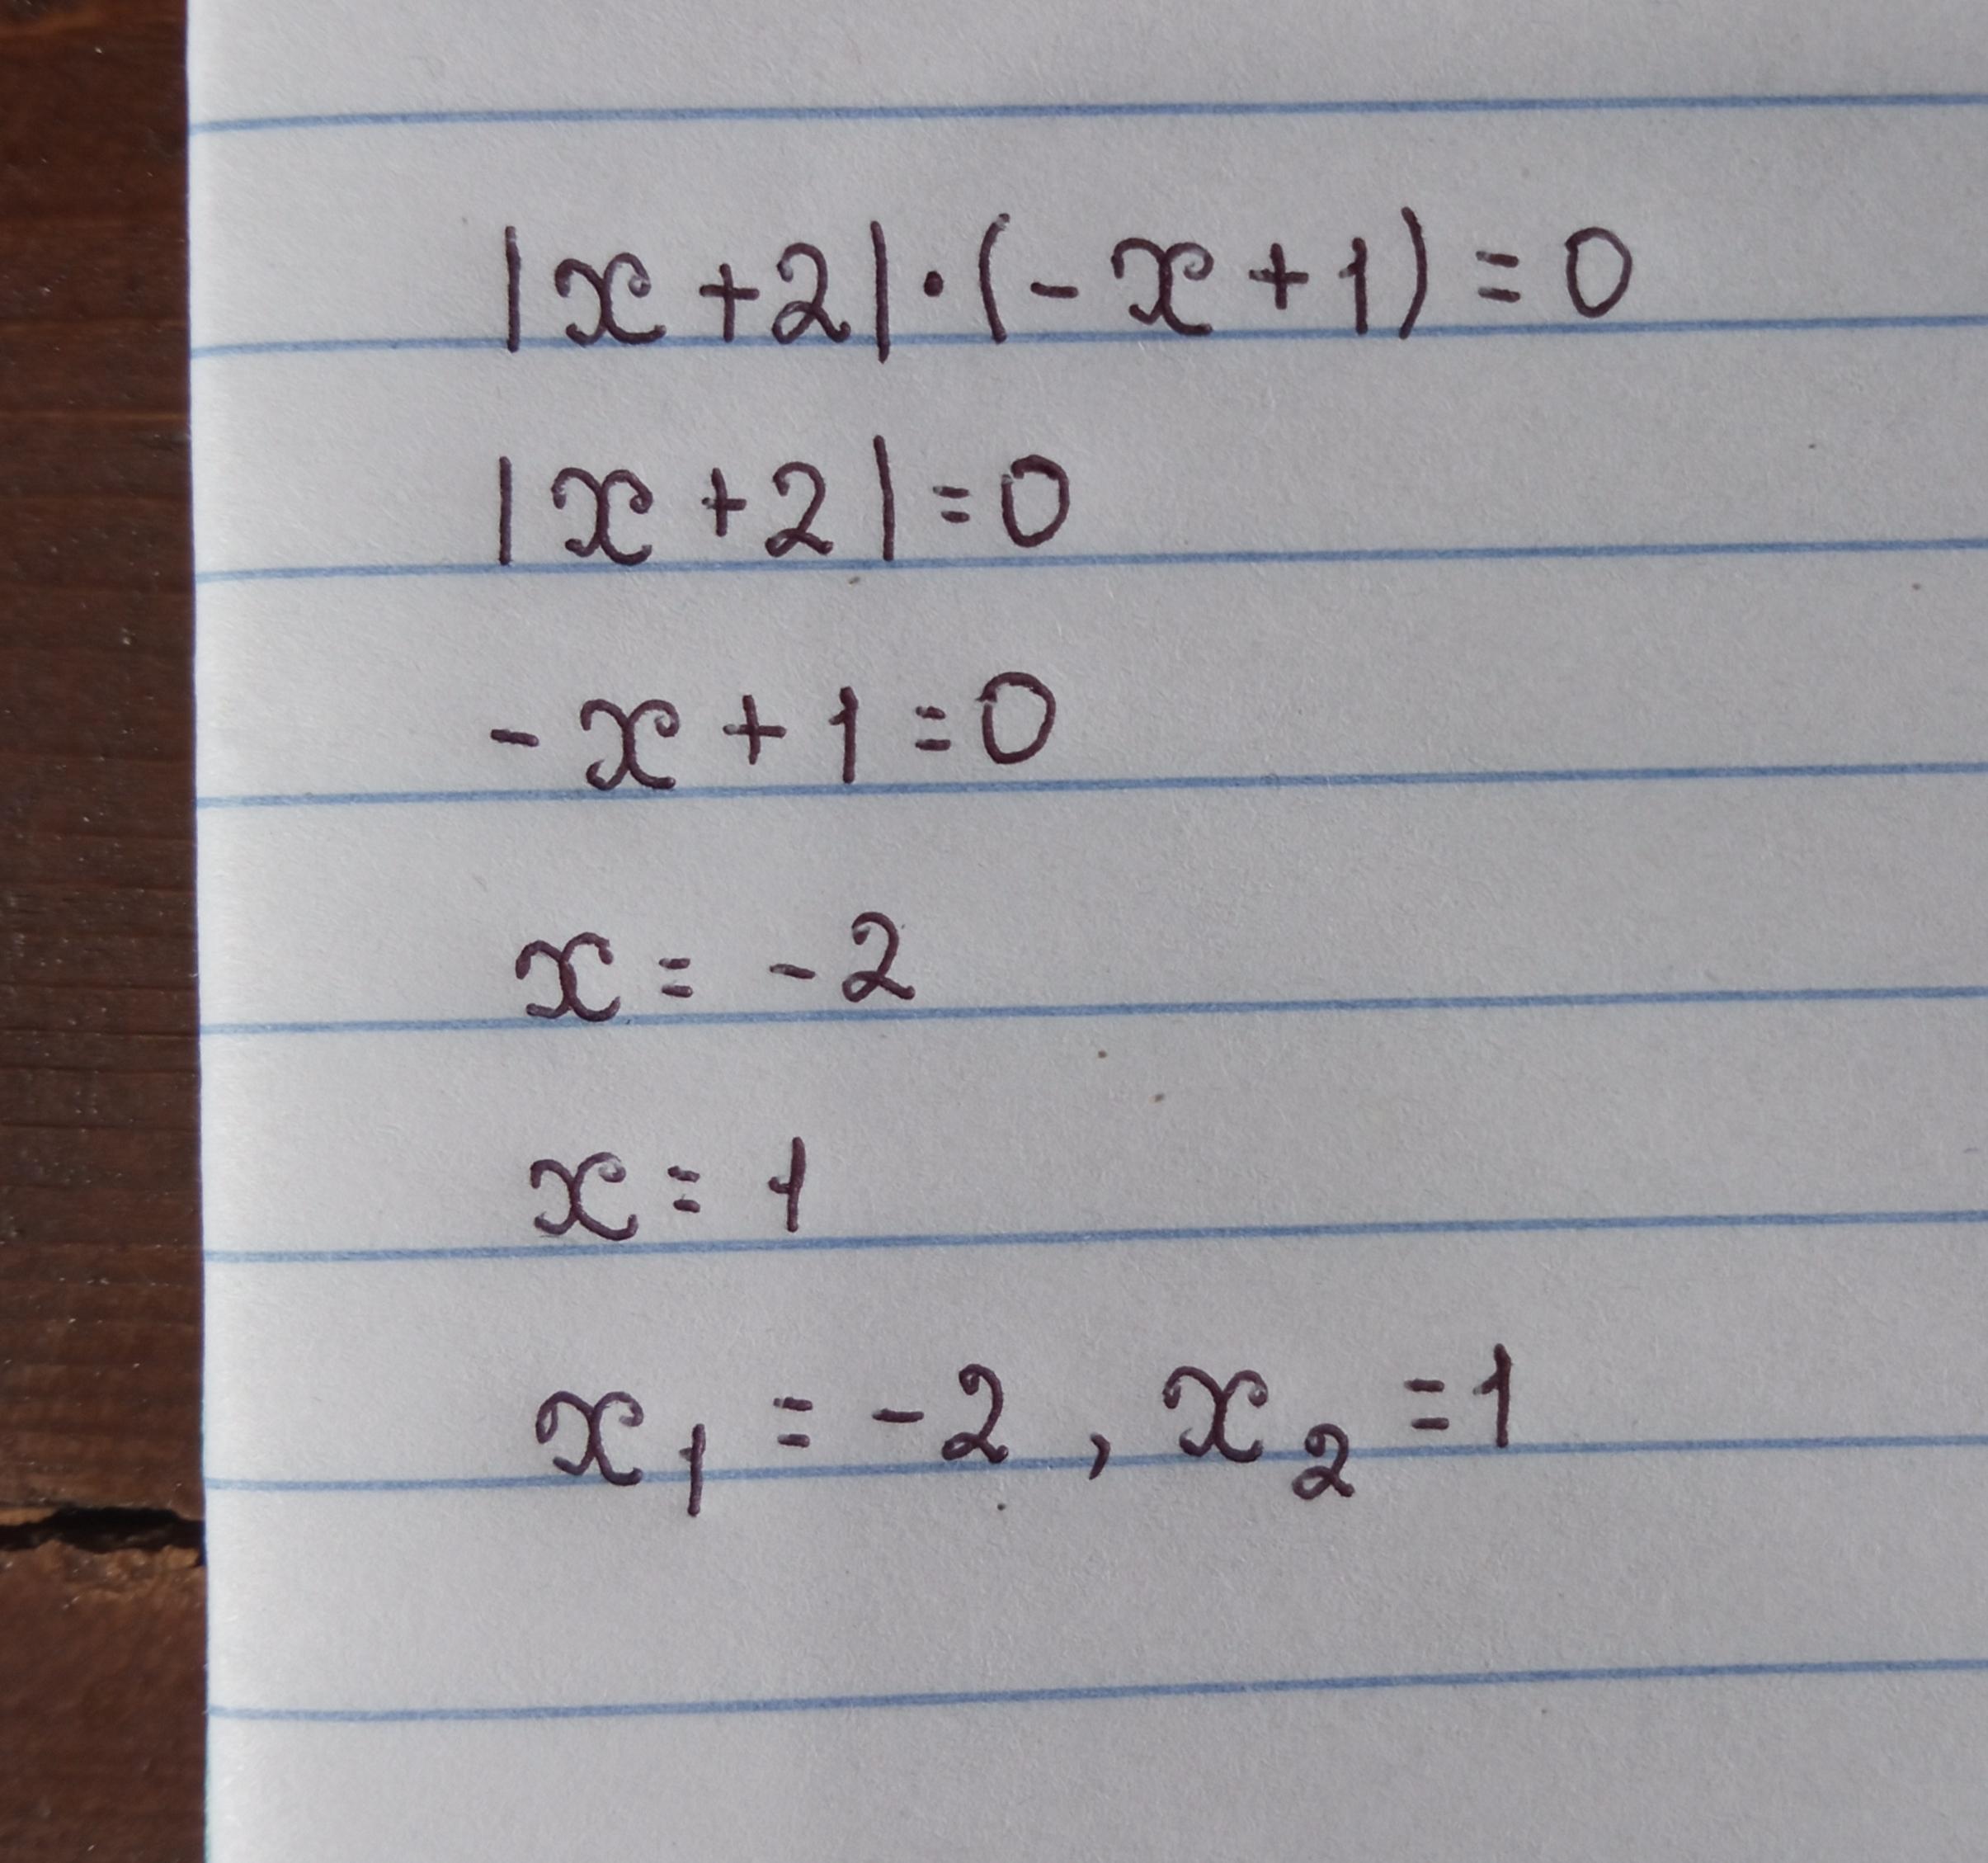 |x+2|·(-x+1)=0
|x+2|=0
-x+1=0
x=-2
x=1
x₁=-2, x₂=1